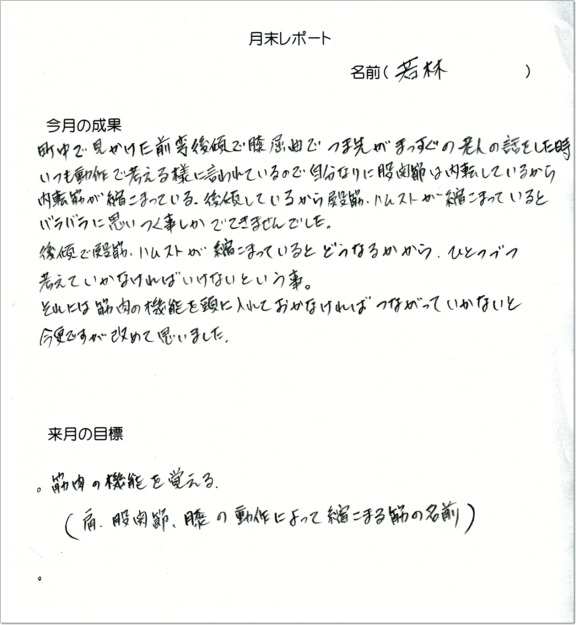 月末レポート
名前( 若林 )
今月の成果
町中で見かけた前弯後傾で膝屈曲でつま先がまっすぐの老人の話をした時
いつも動作で考える様に言われているので自分なりに股関節は内転しているから
内転筋が縮こまっている。後傾しているから殿筋、ハムストが縮こまっていると
バラバラに思いつく事しかできませんでした。
後傾で殿筋、ハムストが縮こまっているとどうなるかから、ひとつづつ
考えていかなければいけないという事。
それには筋肉の機能を頭に入れておかなければつながっていかないと
今更ですが改めて思いました。
来月の目標
。筋肉の機能を覚える。
(肩、股関節、膝の動作によって縮こまる筋の名前)
。